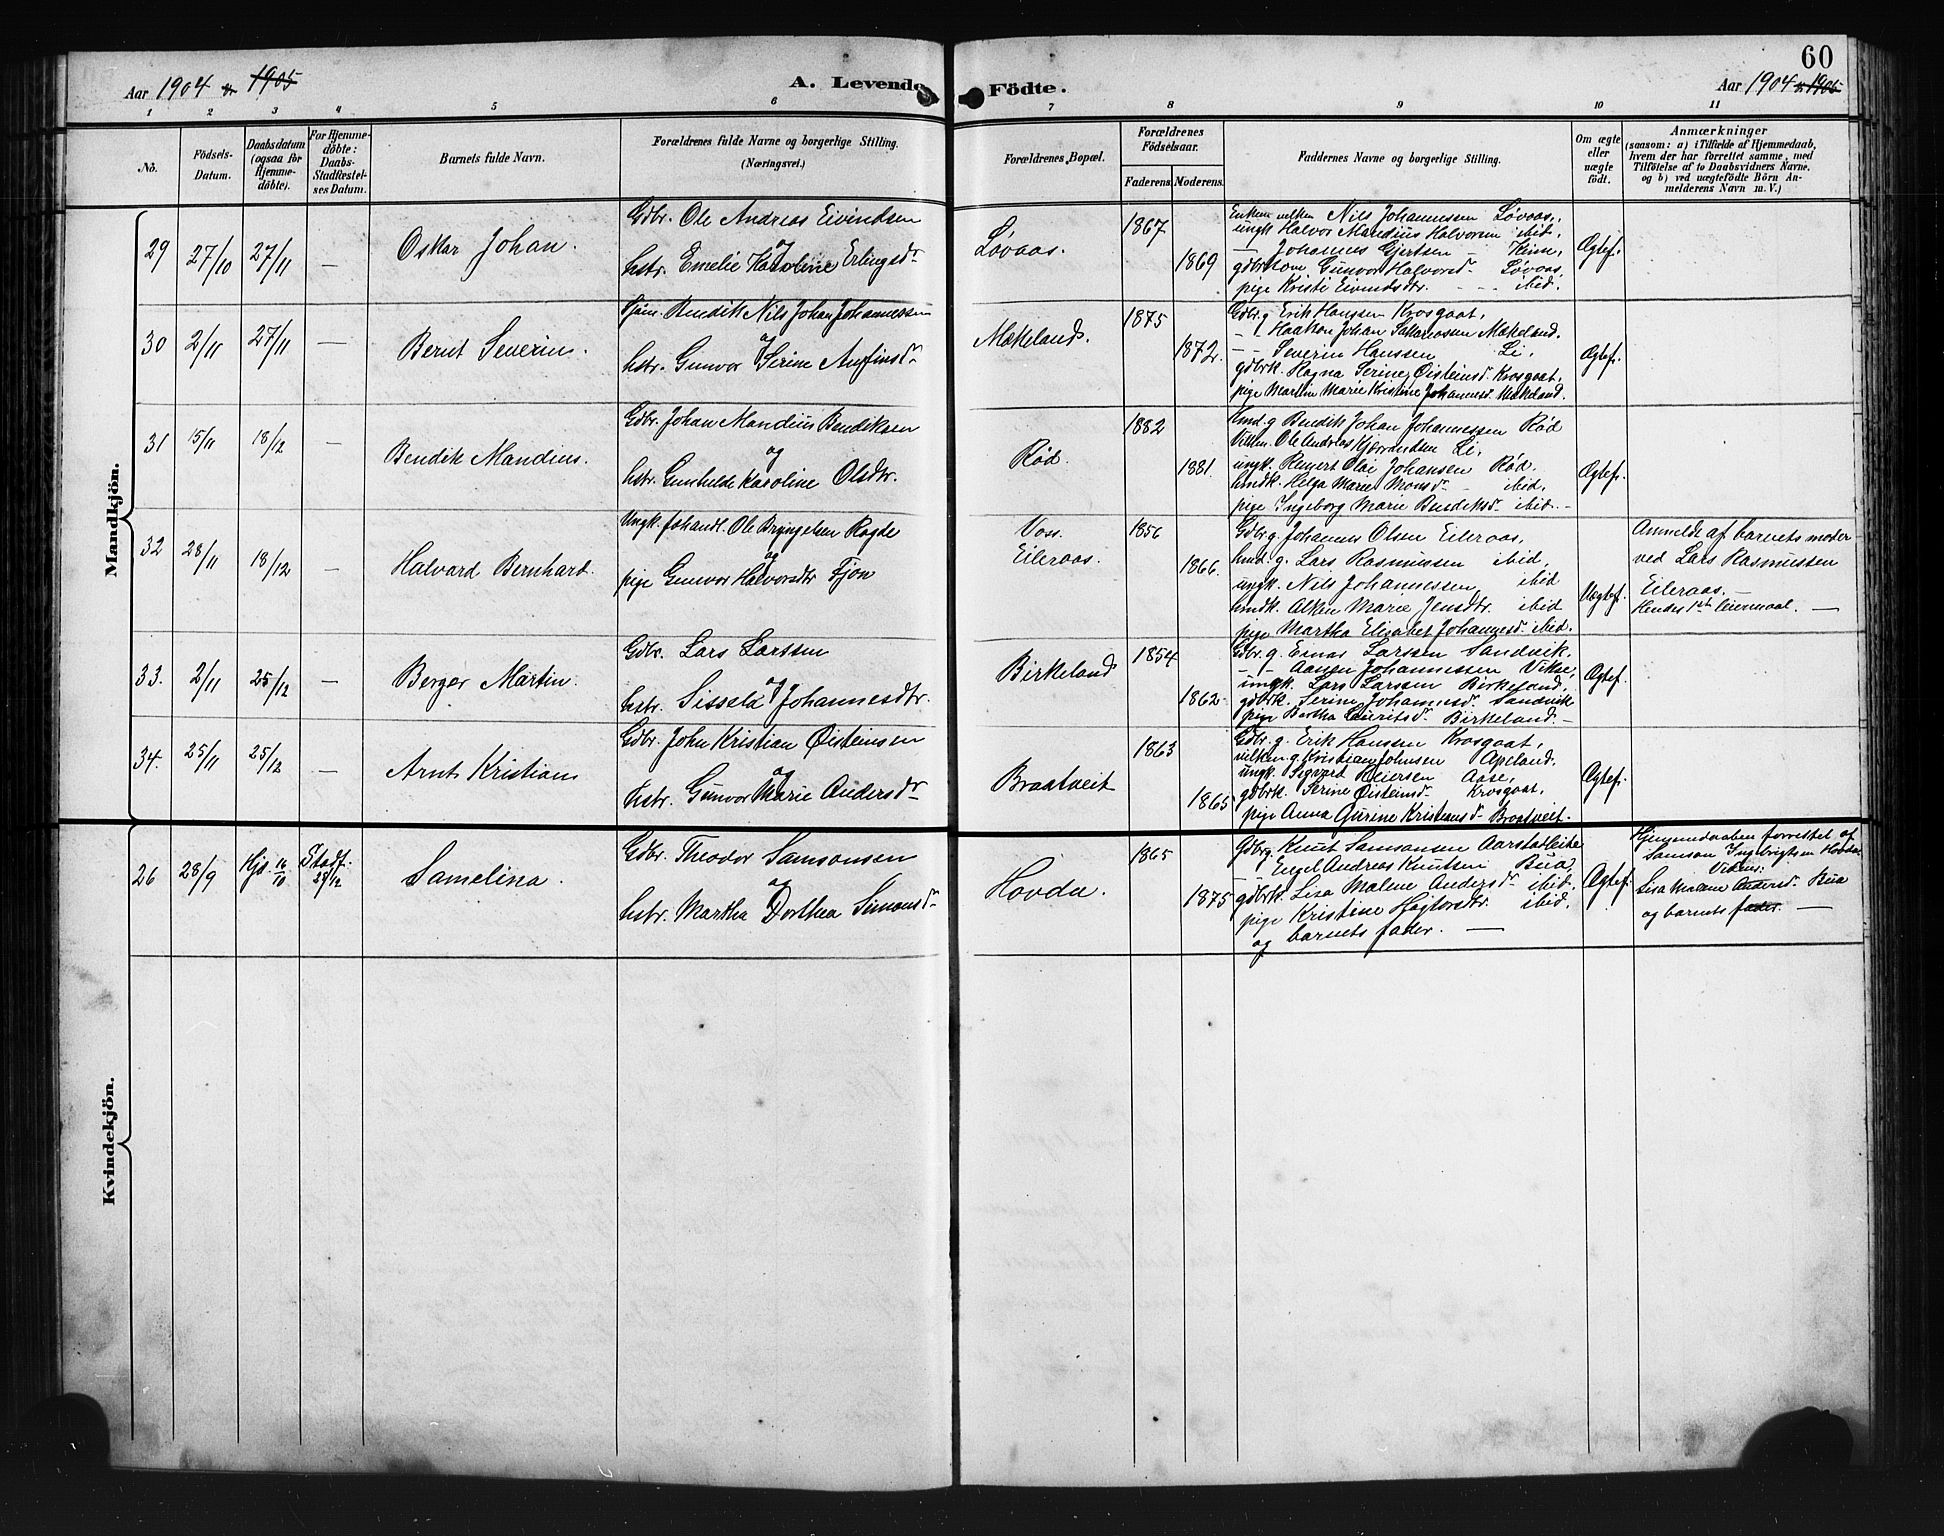 60
Aar 1904 & 1905
A. Levende Födte.
Aar 1904 & 1905
1 2 3 4 5 6 7 8 9 10 11
No.
Födsels-Datum.
Daabsdatum (ogsaa for Hjemme-döbte).
For Hjemme-döbte: Daabs-Stadfæstel-ses Datum.
Barnets fulde Navn.
Forældrenes fulde Navne og borgerlige Stilling.
(Næringsvei.)
Forældrenes Bopæl.
Forældrenes Födselsaar.
Faderens. Moderens.
Faddernes Navne og borgerlige Stilling.
Om ægte eller uægte födt.
Anmærkninger
(saasom: a) i Tilfælde af Hjemmedaab, hvem der har forrettet samme, med Tilföielse af to Daabsvidners Navne, og b) ved uægtefödte Börn An-melderens Navn m. V.)
Mandkjön.
29 27/10 27/11 — Oskar Johan.
Gdbr. Ole Andreas Eivindsen
og
hstr. Emelie Karoline Erlingsdr
Løvaas.
1867
1869
Enkem. Nils Johannessen Løvaas,
ungk Halvor Mandius Halvorsen ibid,
— Johannes Gjertsen — Heim,
gdbrkone Gunvor Halvorsd. Løvaas,
pige Kristi Eivindsdtr. - - - ibid.
Ægtef.
30 2/11 27/11 — Bernt Severin.
Sjøm. Bendik Nils Johan Johannessen
og
hstr. Gunvor Serine Anfinsdr
Mækeland.
1875
1872.
Gdbr.g. Erik Hanssen Krosgaat,
Haakon Johan Sakariassen Mækeland.
— Severin Hanssen Li,
gdbrk. Ragna Serine Øisteinsd. Krosgaat,
pige Martin Marie Kristine Johannesd. Mækeland.
Ægtef.
31 15/11 18/12 — Bendik Mandius.
Gdbr. Johan Mandius Bendiksen
og
hstr. Gunhilde Karoline Olsdtr.
Rød.
1882
1881.
hmd.g Bendik Johan Johannessen Rød
Ole Andreas Li,
ungk. Reinert Olai Johansen Rød.
hmdk. Helga Marie Monsd. - ibid,
pige Ingeborg Marie Bendiksd. ibid. -
Ægtef.
32 28/11 18/12 — Halvard Bernhard.
Ungk. Johandl. Ole Bryngelsen Ragde
og
pige Gunvor Halvorsdtr Fjon
Voss.
Eileraas.
1856
1866.
Gdbr.g. Johannes Olsen Eileraas,
hmd.g. Lars Rasmussen ibid,
ungk. Nils Johannessen ibid
hmdk. Alkin Marie Jensdtr. ibid
pige Martha Elisabet Johannesd. ibid.
Uægtef.
Anmeldt af barnets moder
ved Lars Rasmussen
Eileraas. —
Hendes 1st leiermaal. —
33. 2/11 25/12 — Berger Martin.
Gdbr. Lars Larssen
og
hstr. Sissela Johannesdtr.
Birkeland
1854
1862
Gdbr.g. Einar Larssen Sandvik,
— Aanen Johannessen Vikse,
ungk. Lars Larssen Birkeland,
gdbrk. Serine Johannesd. Sandvik
pige Bertha Lauritsd. Birkeland. —
Ægtef.
34. 25/11 25/12 — Arnt Kristian
Gdbr. John Kristian Øisteinsen
og
hstr. Gunvor Marie Andersdr
Braatveit
1863
1865
Gdbr.g. Erik Hanssen Krosgaat,
Kristian Johnsen Apeland.
ungk. Sigvard Peiersen Aase,
gdbrk. Serine Øisteinsd. Krosgaat,
pige Anna Gurine Kristiansd. Braatveit.
Ægtef.
Kvindekjön.
26 28/9 Hjd. 16/10 Stadf. 27/12 Samelina.
Gdbr. Theodor Samsonsen
og
hstr. Martha Dorthea Simonsdr
Hovda.
1865
1875
Gdbrg. Knut Samsonsen Aarstatleite
— Engel Andreas Knutsen Bua,
gdbrk. Lisa Malene Andersd. ibid,
pige Kristine Hagtorsdtr. ibid.
og barnets fader. —
Ægtef.
Hjemmedaaben forrettet af
Samson Ingbrigtsen Hovda.
Vidner:
Lisa Malene Andersd. Bua
og barnets fader. —